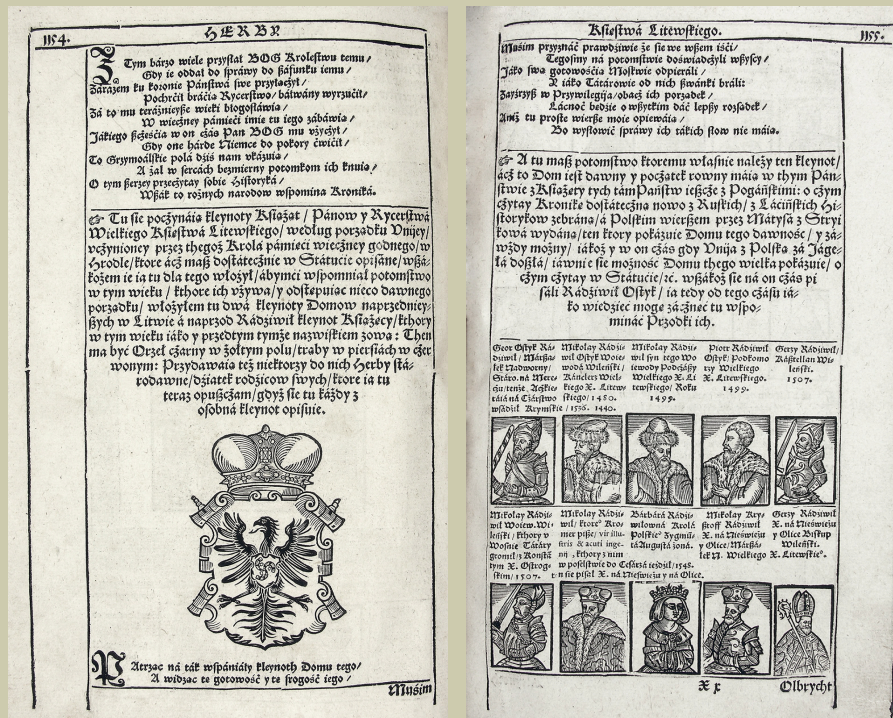 1154. HERBY
Tym bárzo wiele przysłał BOG Krolestwu temu /
Gdy ie oddał do spráwy do száfunku iemu /
Zárázem ku koronie Páństwá swe przyłączył /
Pochrćił bráćia Rycerstwo / báłwány wyrzućił /
Zá to mu teráznieysze wieki błogosłáwią /
W wieczney pámięći imię tu iego zábáwia /
Jákiego sczęśćia w on czás Pan BOG mu vżyczył /
Gdy one hárde Niemce do pokory ćwiczył /
To Grzymoálskie polá dziś nam vkázuią /
A żal w sercách bezmierny potomkom ich knuią /
O tym szerzey przeczytay sobie Historyká /
Wszák to rożnych narodow wspomina Kroniká.
Tu sie poczynáią kleynoty Kśiążąt / Pánow y Rycerstwá
Wielkiego Kśięstwá Litewskiego / według porządku Vniiey /
vczynioney przez thegoż Krolá pámięći wieczney godnego / w
Hrodle / ktore ácz masz dostátecznie w Státućie opisáne / wszá-
kożem ie ia tu dla tego włożył / ábymći wspomniał potomstwo
w tym wieku / kthore ich vżywa / y odstępuiąc nieco dawnego
porządku / włożyłem tu dwá kleynoty Domow naprzedniey-
szych w Litwie á naprzod Rádziwił kleynot Kśiążęcy / kthory
w tym wieku iáko y przedtym tymże nazwiskiem zową : Then
ma być Orzeł czarny w żołtym polu / trąby w pierśiách w czer
wonym : Przydawáią też niektorzy do nich Herby stá-
rodawne / dźiatek rodźicow swych / ktore ia tu
teraz opuszczam / gdyż sie tu káżdy z
osobná kleynot opisuie.
PAtrząc ná ták wspániáły kleynoth Domu tego /
A widząc tę gotowość y tę srogość iego /
Muśim
Kśięstwá Litewskiego. 1155.
Muśim przyznáć prawdźiwie że sie we wszem iśći /
Tegosmy ná potomstwie doświádczyli wszyscy /
Jáko swą gotowośćią Moskwie odpieráli /
Y iáko Tátárowie od nich szwánki bráli:
Zayźrzysz w Przywilegija / obacz ich porządek /
Łácnoć będźie o wszytkim dáć lepszy rozsądek /
Aniż tu proste wiersze moie opiewáią /
Bo wysłowić spráwy ich tákich słow nie máią.
A tu masz potomstwo ktoremu własnie należy ten kleynot /
ácz to Dom iest dawny y początek rowny máią w thym Pán-
stwie z Kśiążęty tych tám Páństw ieszcze z Pogáńskimi: o czym
czytay Kronikę dostáteczną nowo z Ruskich / z Láćińskich Hi-
storykow zebráną / á Polskim wierszem przez Mátysá z Stryi
kowá wydáną / ten ktory pokázuie Domu tego dawność / y zá-
wżdy możny / iákoż y w on czás gdy Vnija z Polską zá Jágeł-
łá doszłá / iáwnie sie możność Domu thego wielka pokázuie / o
czym czytay w Státućie / rc. wszákoż sie ná on czás pi
sáli Rádźiwił Ostyk / ia tedy od tego czásu iá-
ko wiedźieć mogę zácznę tu wspo-
mináć Przodki ich.
Geor Ostyk Rá-
dźiwił / Márszá-
łek Nadworny /
Stáro. ná Mere-
czu / tenże Ackie-
ráiá ná Cárstwo
wsádźił Krymskie / 1536. 1440.
Mikołay Rádźi-
wił Ostyk Woie-
wodá Wileński /
Kánclerz Wiel-
kiego X. Litew-
skiego / 1480.
Mikołay Rádźi-
wił syn tego Wo
iewody Podczászy
Wielkiego X. Li
tewskiego / Roku
1499.
Piotr Rádźiwił
Ostyk / Podkomo
rzy Wielkiego
X. Litewskiego.
1499.
Gerzy Rádźiwił /
Kásztellan Wi-
leński.
1507.
Mikołay Rádźi-
wił Woiew. Wi-
leński / kthory v
Wośnie Tátáry
gromił / z Konstá
tym X. Ostrog-
skim / 1507.
Mikołay Rádźi-
wił / ktoreº Kro-
mer pisze / vir illu-
stris & acuti inge-
nij / kthory z nim
w poselstwie do Cesárzá ieźdźił / 1548.
ten sie pisał X. ná Nieświeżu y ná Olice.
Bárbárá Rádźi-
wiłowná Krolá
Polskieº Zygmū-
tá Augustá żoná.
Mikołay Kry-
sztoff Rádźiwił
X. ná Nieświeżu
y Olice / Márszá-
łek N. Wielkiego
Gerzy Rádźiwił
X. ná Nieświeżu
y Olice Biskup
Wileński.
X. Litewskieº.
X x Olbrycht